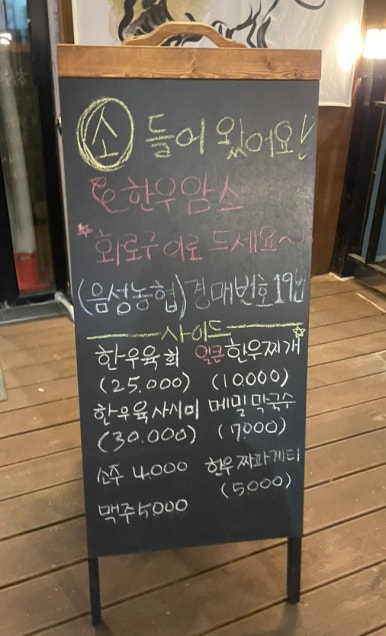 소 들어 왔어요!
한우암소
화로구이로 드세요~
(음성농협) 경매번호 19번
사이드
한우육회 얼큰한우찌개
(25,000) (10,000)
한우육사시미 메밀막국수
(30,000) (7,000)
소주 4,000 한우 짜파게티
(5,000)
맥주 5,000